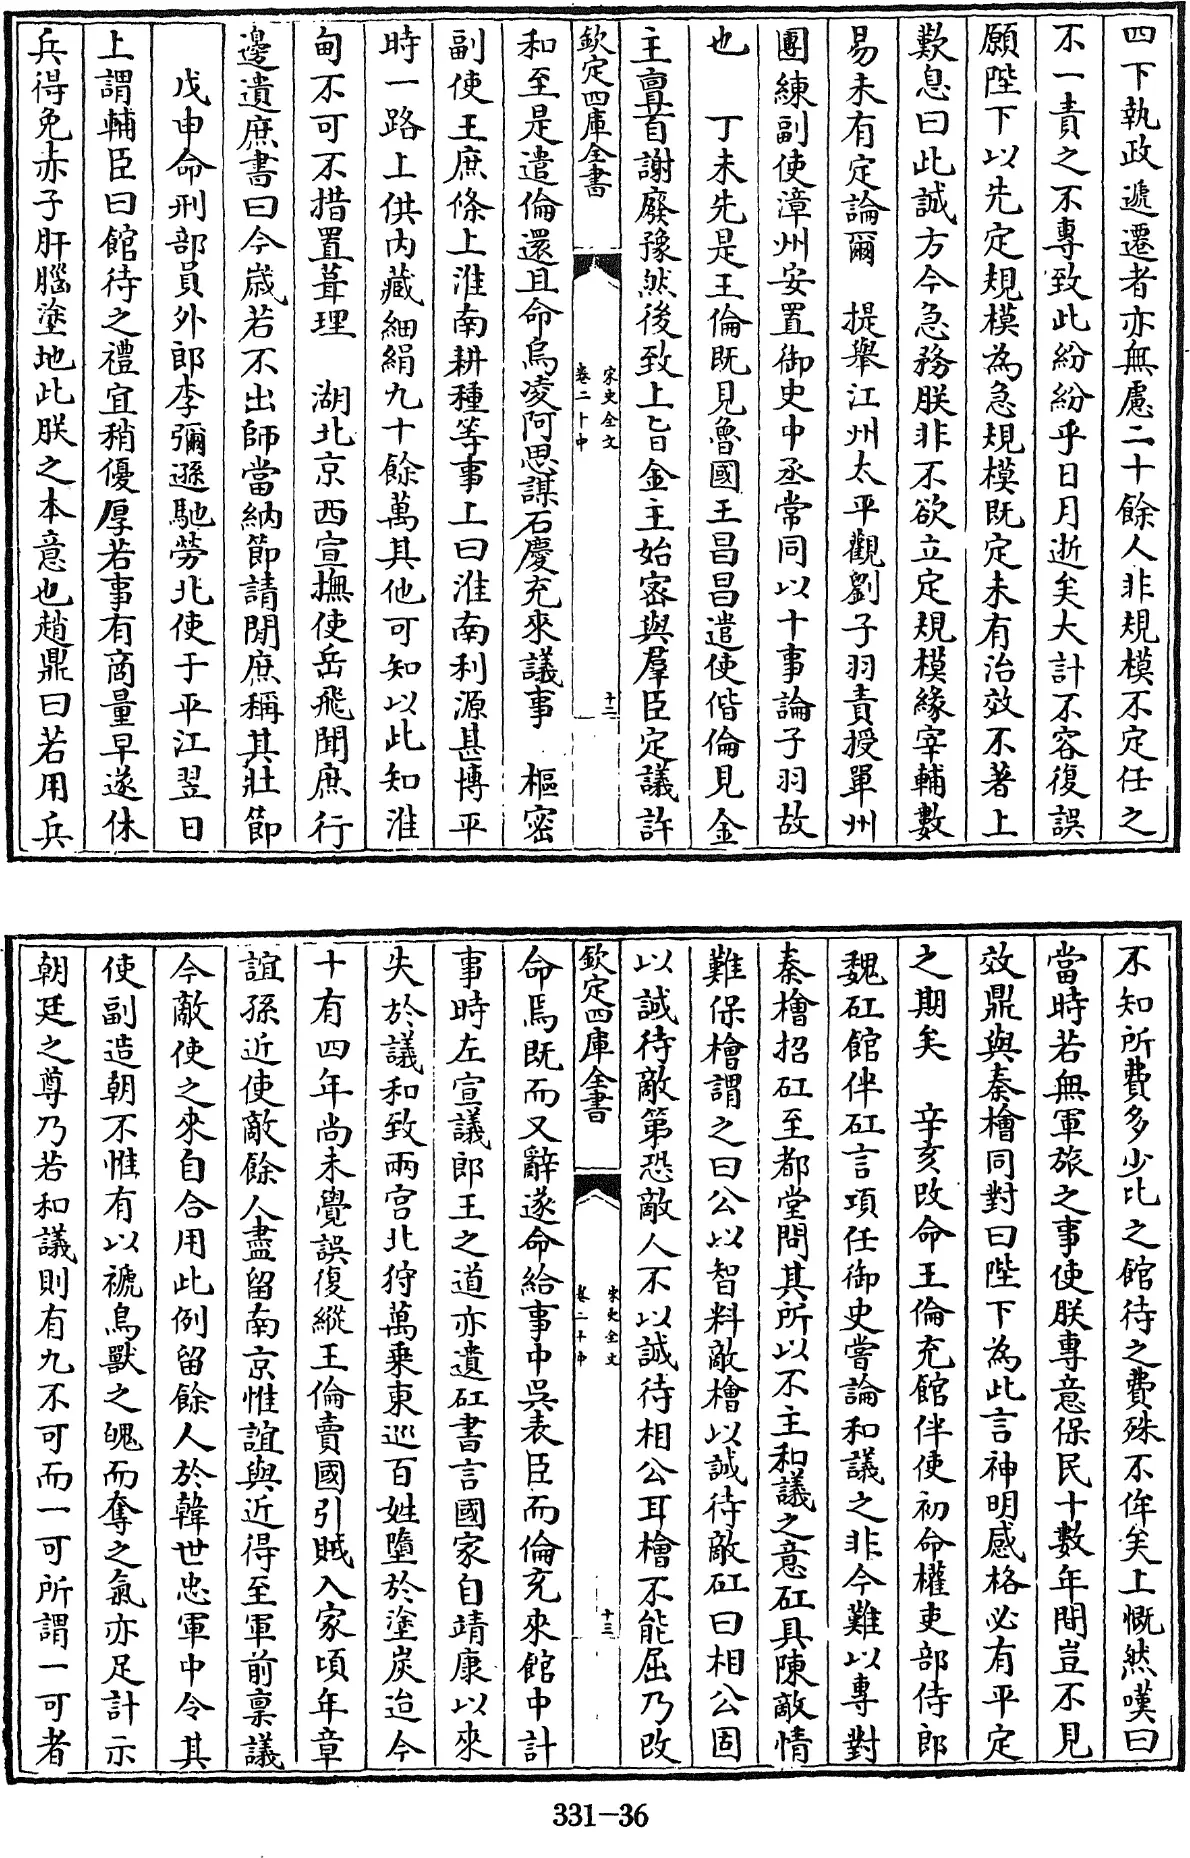 四下執政遞遷者亦無慮二十餘人非規模不定任之
不一責之不專致此紛紛乎日月逝矣大計不容復誤
願陛下以先定規模為急規模既定未有治效不著上
歎息曰此誠方今急務朕非不欲立定規模緣宰輔數
易未有定論爾　提舉江州太平觀劉子羽責授單州
團練副使漳州安置御史中丞常同以十事論子羽故
也　丁未先是王倫既見魯國王昌昌遣使偕倫見金
主亶首謝廢豫然後致上旨金主始密與羣臣定議許
欽定四庫全書
宋史全文
卷二十中
十二
和至是遣倫還且命烏凌阿思謀石慶充來議事　樞密
副使王庶條上淮南耕種等事上曰淮南利源甚博平
時一路上供內藏細絹九十餘萬其他可知以此知淮
甸不可不措置葺理　湖北京西宣撫使岳飛聞庶行
邊遺庶書曰今歲若不出師當納節請閒庶稱其壯節
戊申命刑部員外郎李彌遜馳勞北使于平江翌日
上謂輔臣曰館待之禮宜稍優厚若事有商量早遂休
兵得免赤子肝腦塗地此朕之本意也趙鼎曰若用兵
不知所費多少比之館待之費殊不侔矣上慨然嘆曰
當時若無軍旅之事使朕專意保民十數年間豈不見
效鼎與秦檜同對曰陛下為此言神明感格必有平定
之期矣　辛亥改命王倫充館伴使初命權吏部侍郎
魏矼館伴矼言項任御史嘗論和議之非今難以專對
秦檜招矼至都堂問其所以不主和議之意矼具陳敵情
難保檜謂之曰公以智料敵檜以誠待敵矼曰相公固
以誠待敵第恐敵人不以誠待相公耳檜不能屈乃改
欽定四庫全書
宋史全文
卷二十中
十三
命焉既而又辭遂命給事中吳表臣而倫充來館中計
事時左宣議郎王之道亦遺矼書言國家自靖康以來
失於議和致兩宮北狩萬乘東巡百姓墮於塗炭迨今
十有四年尚未覺誤復縱王倫賣國引賊入家頃年章
誼孫近使敵餘人盡留南京惟誼與近得至軍前稟議
今敵使之來自合用此例留餘人於韓世忠軍中令其
使副造朝不惟有以褫鳥獸之魄而奪之氣亦足計示
朝廷之尊乃若和議則有九不可而一可所謂一可者
331—36